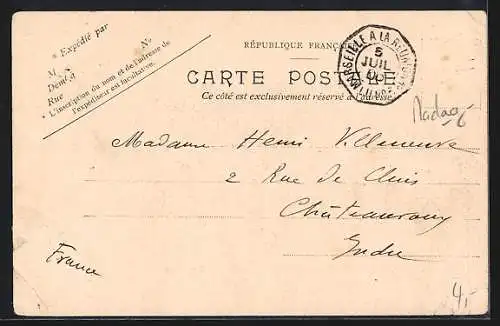 * Expédié par
M
No
Demt à
Rue
* L'inscription du nom et de l'adresse de
l'expéditeur est facultative.
RÉPUBLIQUE FRANÇAISE
CARTE POSTALE
Ce côté est exclusivement réservé à l'adresse
MARSEILLE A LA RÉUNION
5
JUIL
Madag
Madame Henri Villeneuve
2 Rue de Cluis
Châteauroux
Indre
France
4,-